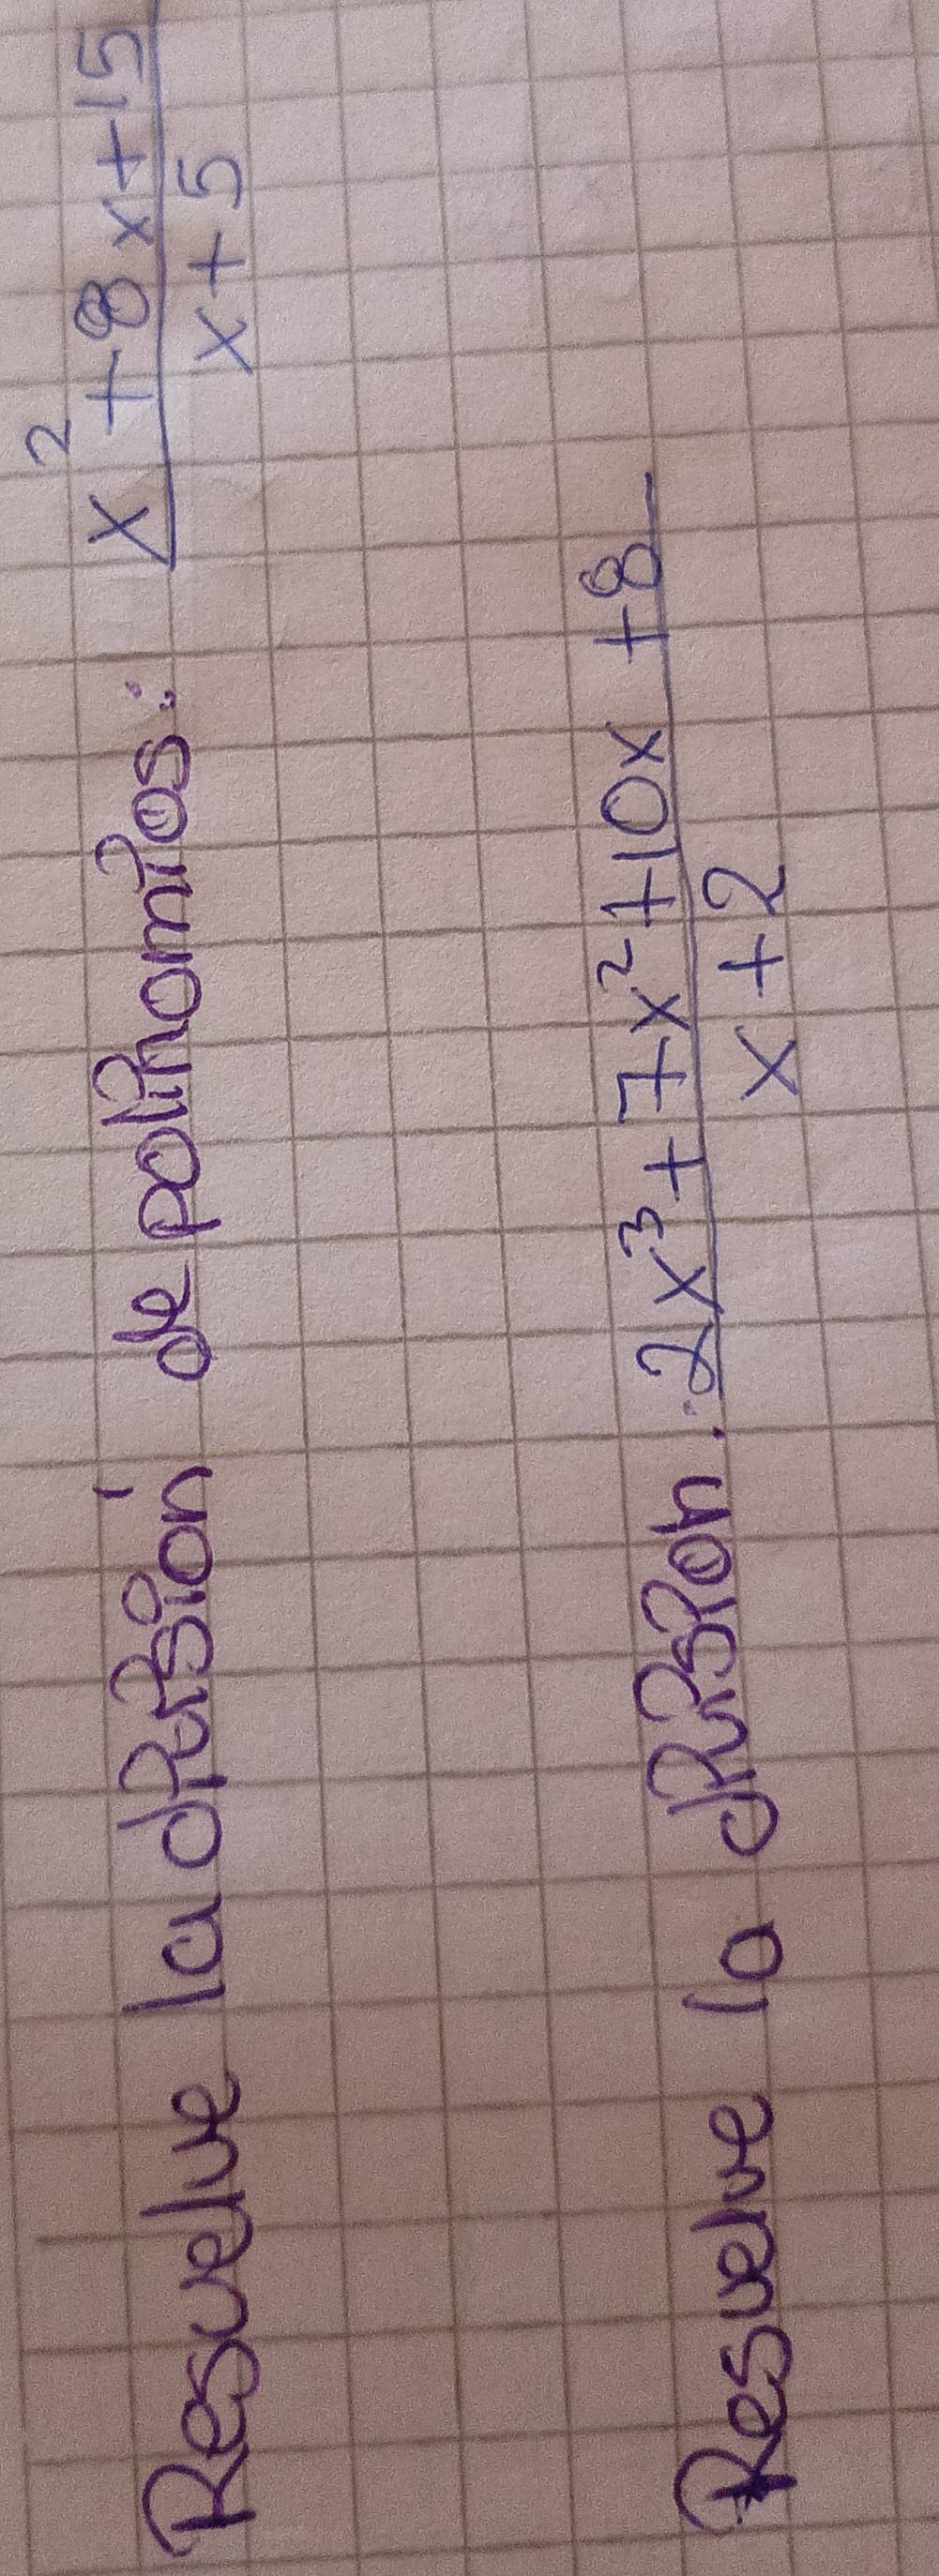 Resuelve la división de polinomios: x² + 8x + 15
x + 5
Resuelve la division: 2x³ + 7x² + 10x + 8
x + 2